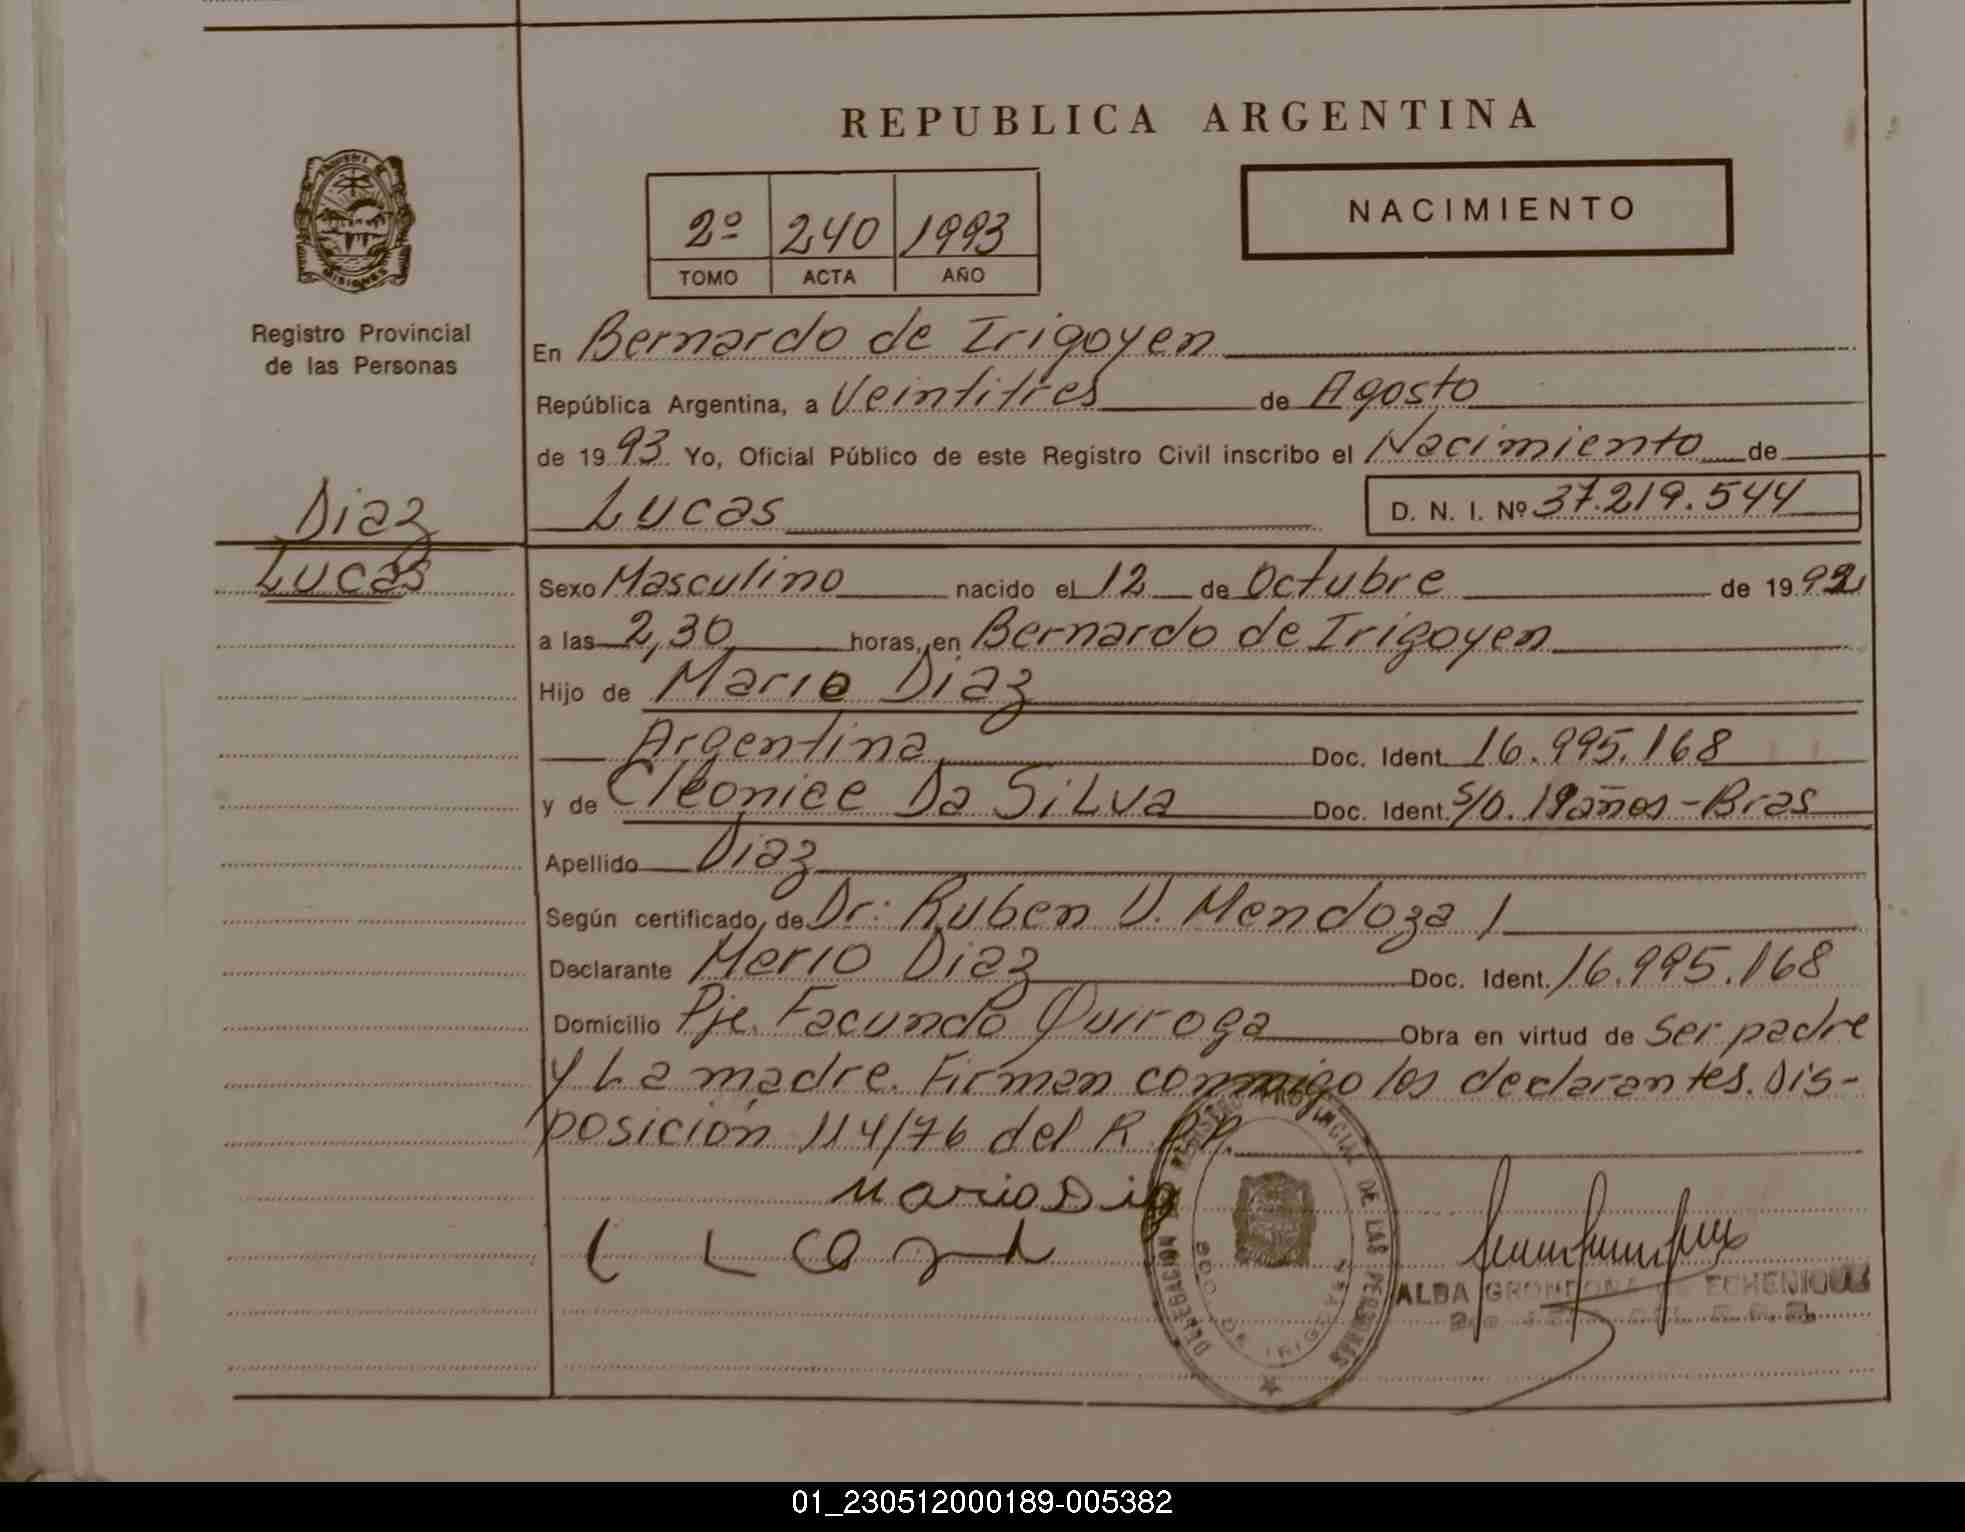 REPUBLICA ARGENTINA
NACIMIENTO
2º 240 1993
TOMO ACTA AÑO
MISIONES
Registro Provincial
de las Personas
En Bernardo de Irigoyen
República Argentina, a Veintitres de Agosto
de 1993 Yo, Oficial Público de este Registro Civil inscribo el Nacimiento de
Lucas D. N. I. Nº 37.219.544
Diaz
Lucas
Sexo Masculino nacido el 12 de Octubre de 1992
a las 2,30 horas, en Bernardo de Irigoyen
Hijo de Mario Diaz
Argentina Doc. Ident. 16.995.168
y de Cleonice Da Silva Doc. Ident. S/D. 19 años - Bras
Apellido Diaz
Según certificado de Dr: Ruben V. Mendoza
Declarante Mario Diaz Doc. Ident. 16.995.168
Domicilio Pje. Facundo Quiroga Obra en virtud de ser padre
y La madre. Firman conmigo los declarantes. Dis-
posición 114/76 del R.
Mario Diaz
DELEGACION REGISTRO PROVINCIAL DE LAS PERSONAS
BDO. DE IRIGOYEN
ALBA GRONDONA DE ECHENIQUE
01_230512000189-005382